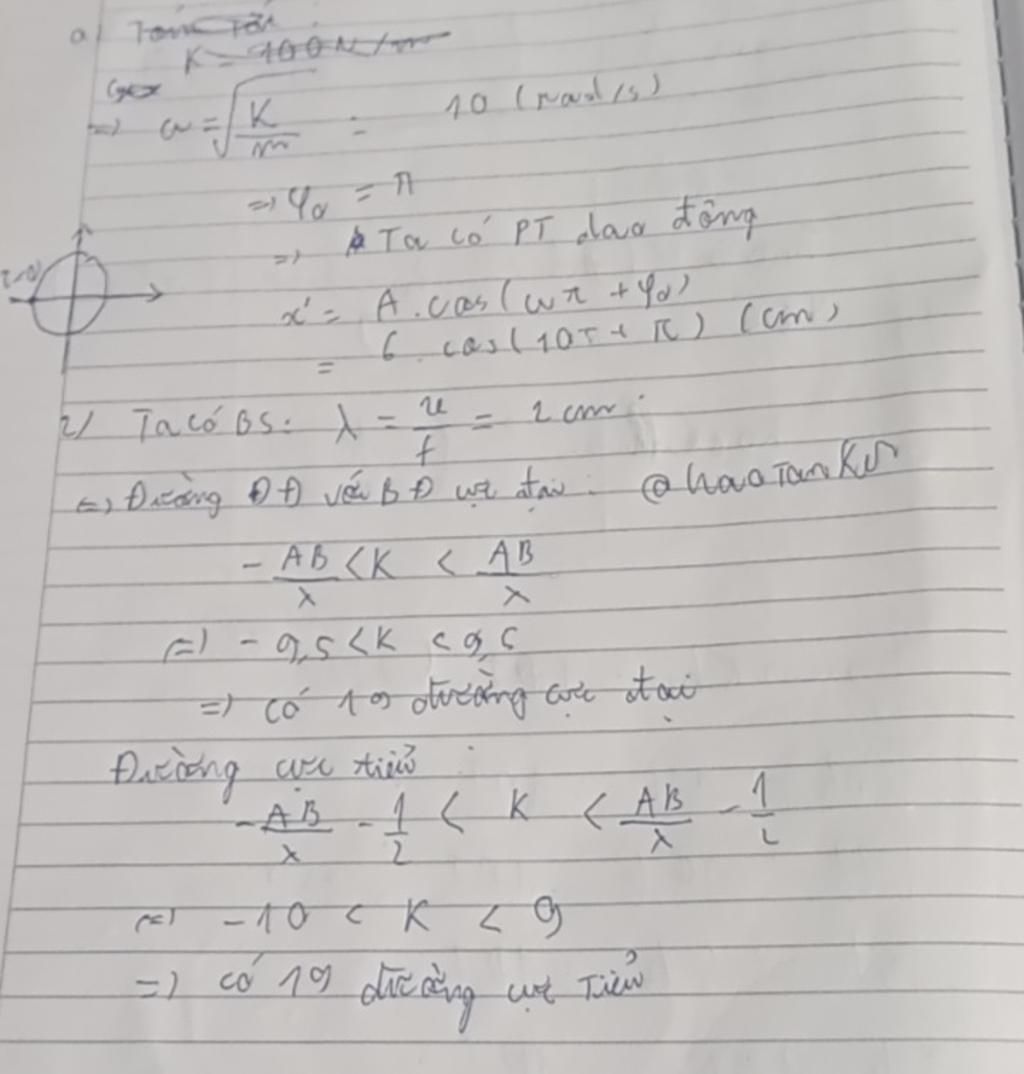 a) Tóm Tắt
K = 100 N/m
=> ω = √(K/m) = 10 (rad/s)
=> φ₀ = π
=> Ta có PT dao động
x = A.cos(ωt + φ₀)
= 6 cos(10t + π) (cm)
2/ Ta có BS: λ = v/f = 2 cm
=> Đường DĐ với BĐ cực đại @haoTan
-AB/λ < K < AB/λ
=> -9,5 < K < 9,5
=> có 19 đường cực đại
Đường cực tiểu
-AB/λ - 1/2 < K < AB/λ - 1/2
=> -10 < K < 9
=> có 19 đường cực Tiểu